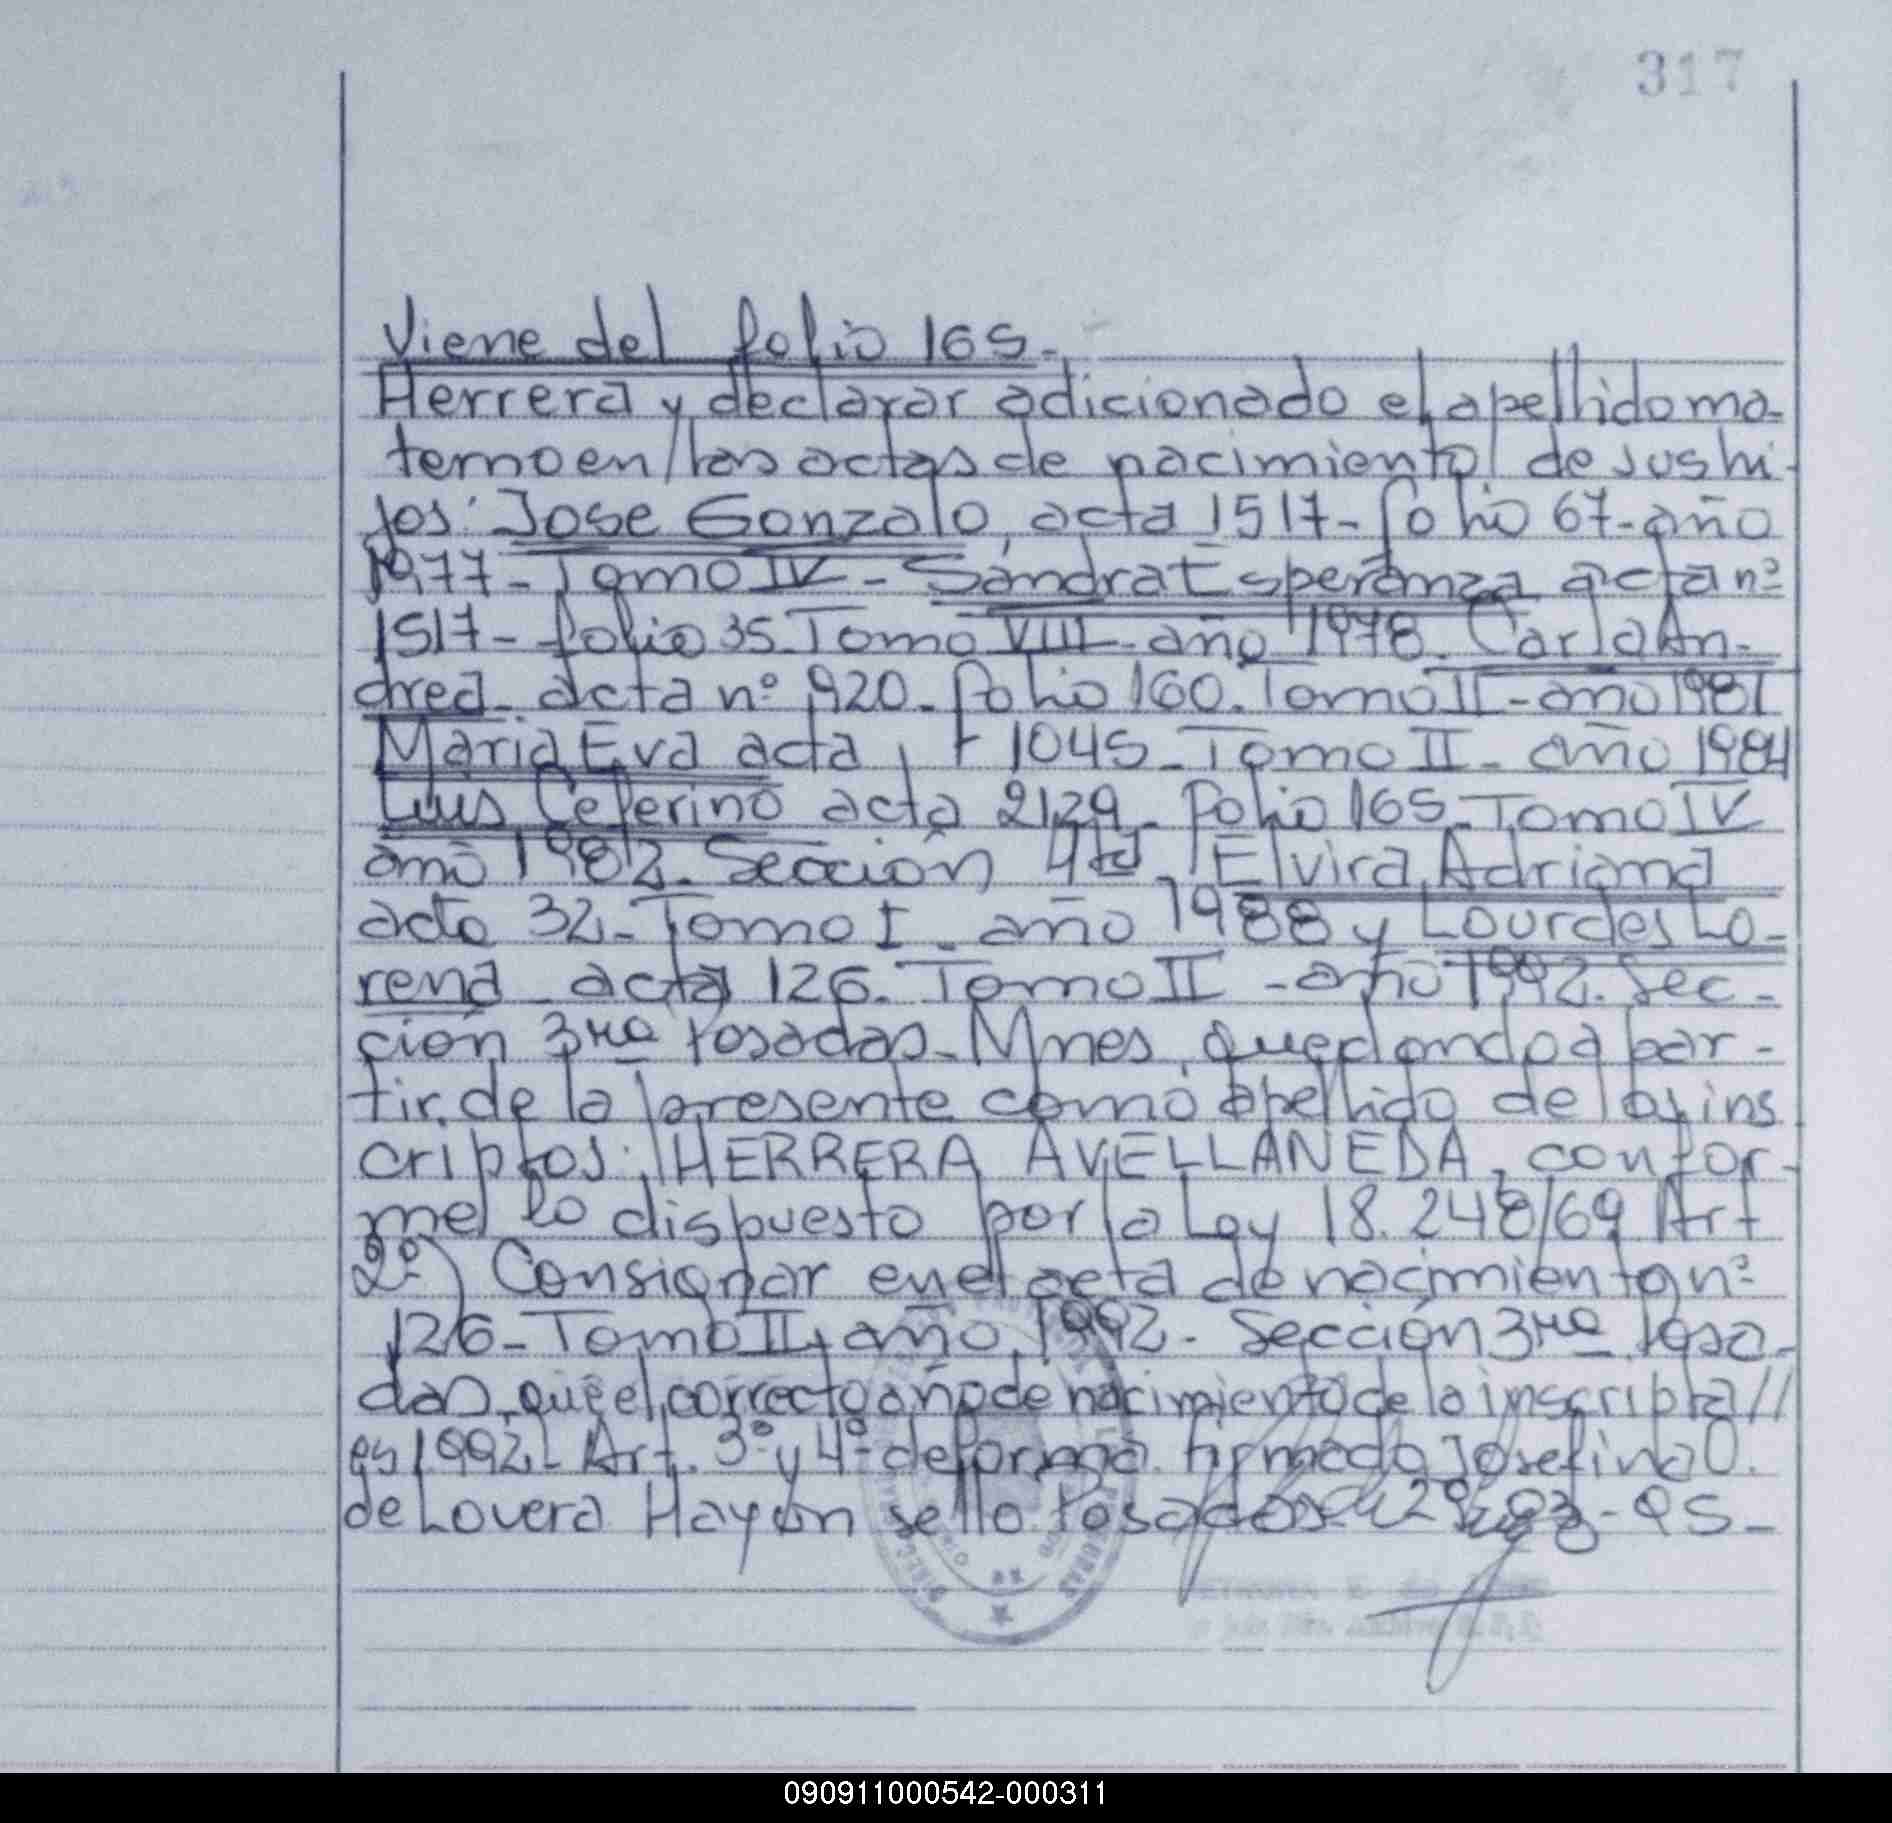 317
Viene del folio 165.
Herrera y declarar adicionado el apellido ma-
terno en/las actas de nacimiento de sus hi-
jos: Jose Gonzalo, acta 1517- folio 67- año
1977- Tomo IV - Sandra Esperanza acta nº
1517- folio 35 Tomo VIII- año 1978. Carla An-
drea acta nº 920- folio 160. Tomo II- año 1981
Maria Eva acta 1045- Tomo II- año 1984
Luis Ceferino acta 2129- folio 165- Tomo IV
año 1982. Sección 4ta Elvira Adriana
acta 32- Tomo I- año 1988 y Lourdes Lo-
rena acta 126. Tomo II - año 1992. Sec-
ción 3ra Posadas- Mnes, quedando a par-
tir de la presente como apellido de los ins
criptos: HERRERA AVELLANEDA, confor-
me lo dispuesto por la Ley 18.248/69 Art
2º) Consignar en el acta de nacimiento nº
126- Tomo II, año 1992- Sección 3ra Posa-
das, que el correcto año de nacimiento de la inscripta//
es 1992- Art. 3º y 4º de forma. firmado Josefina O.
de Lovera Hayon sello. Posadas
090911000542-000311